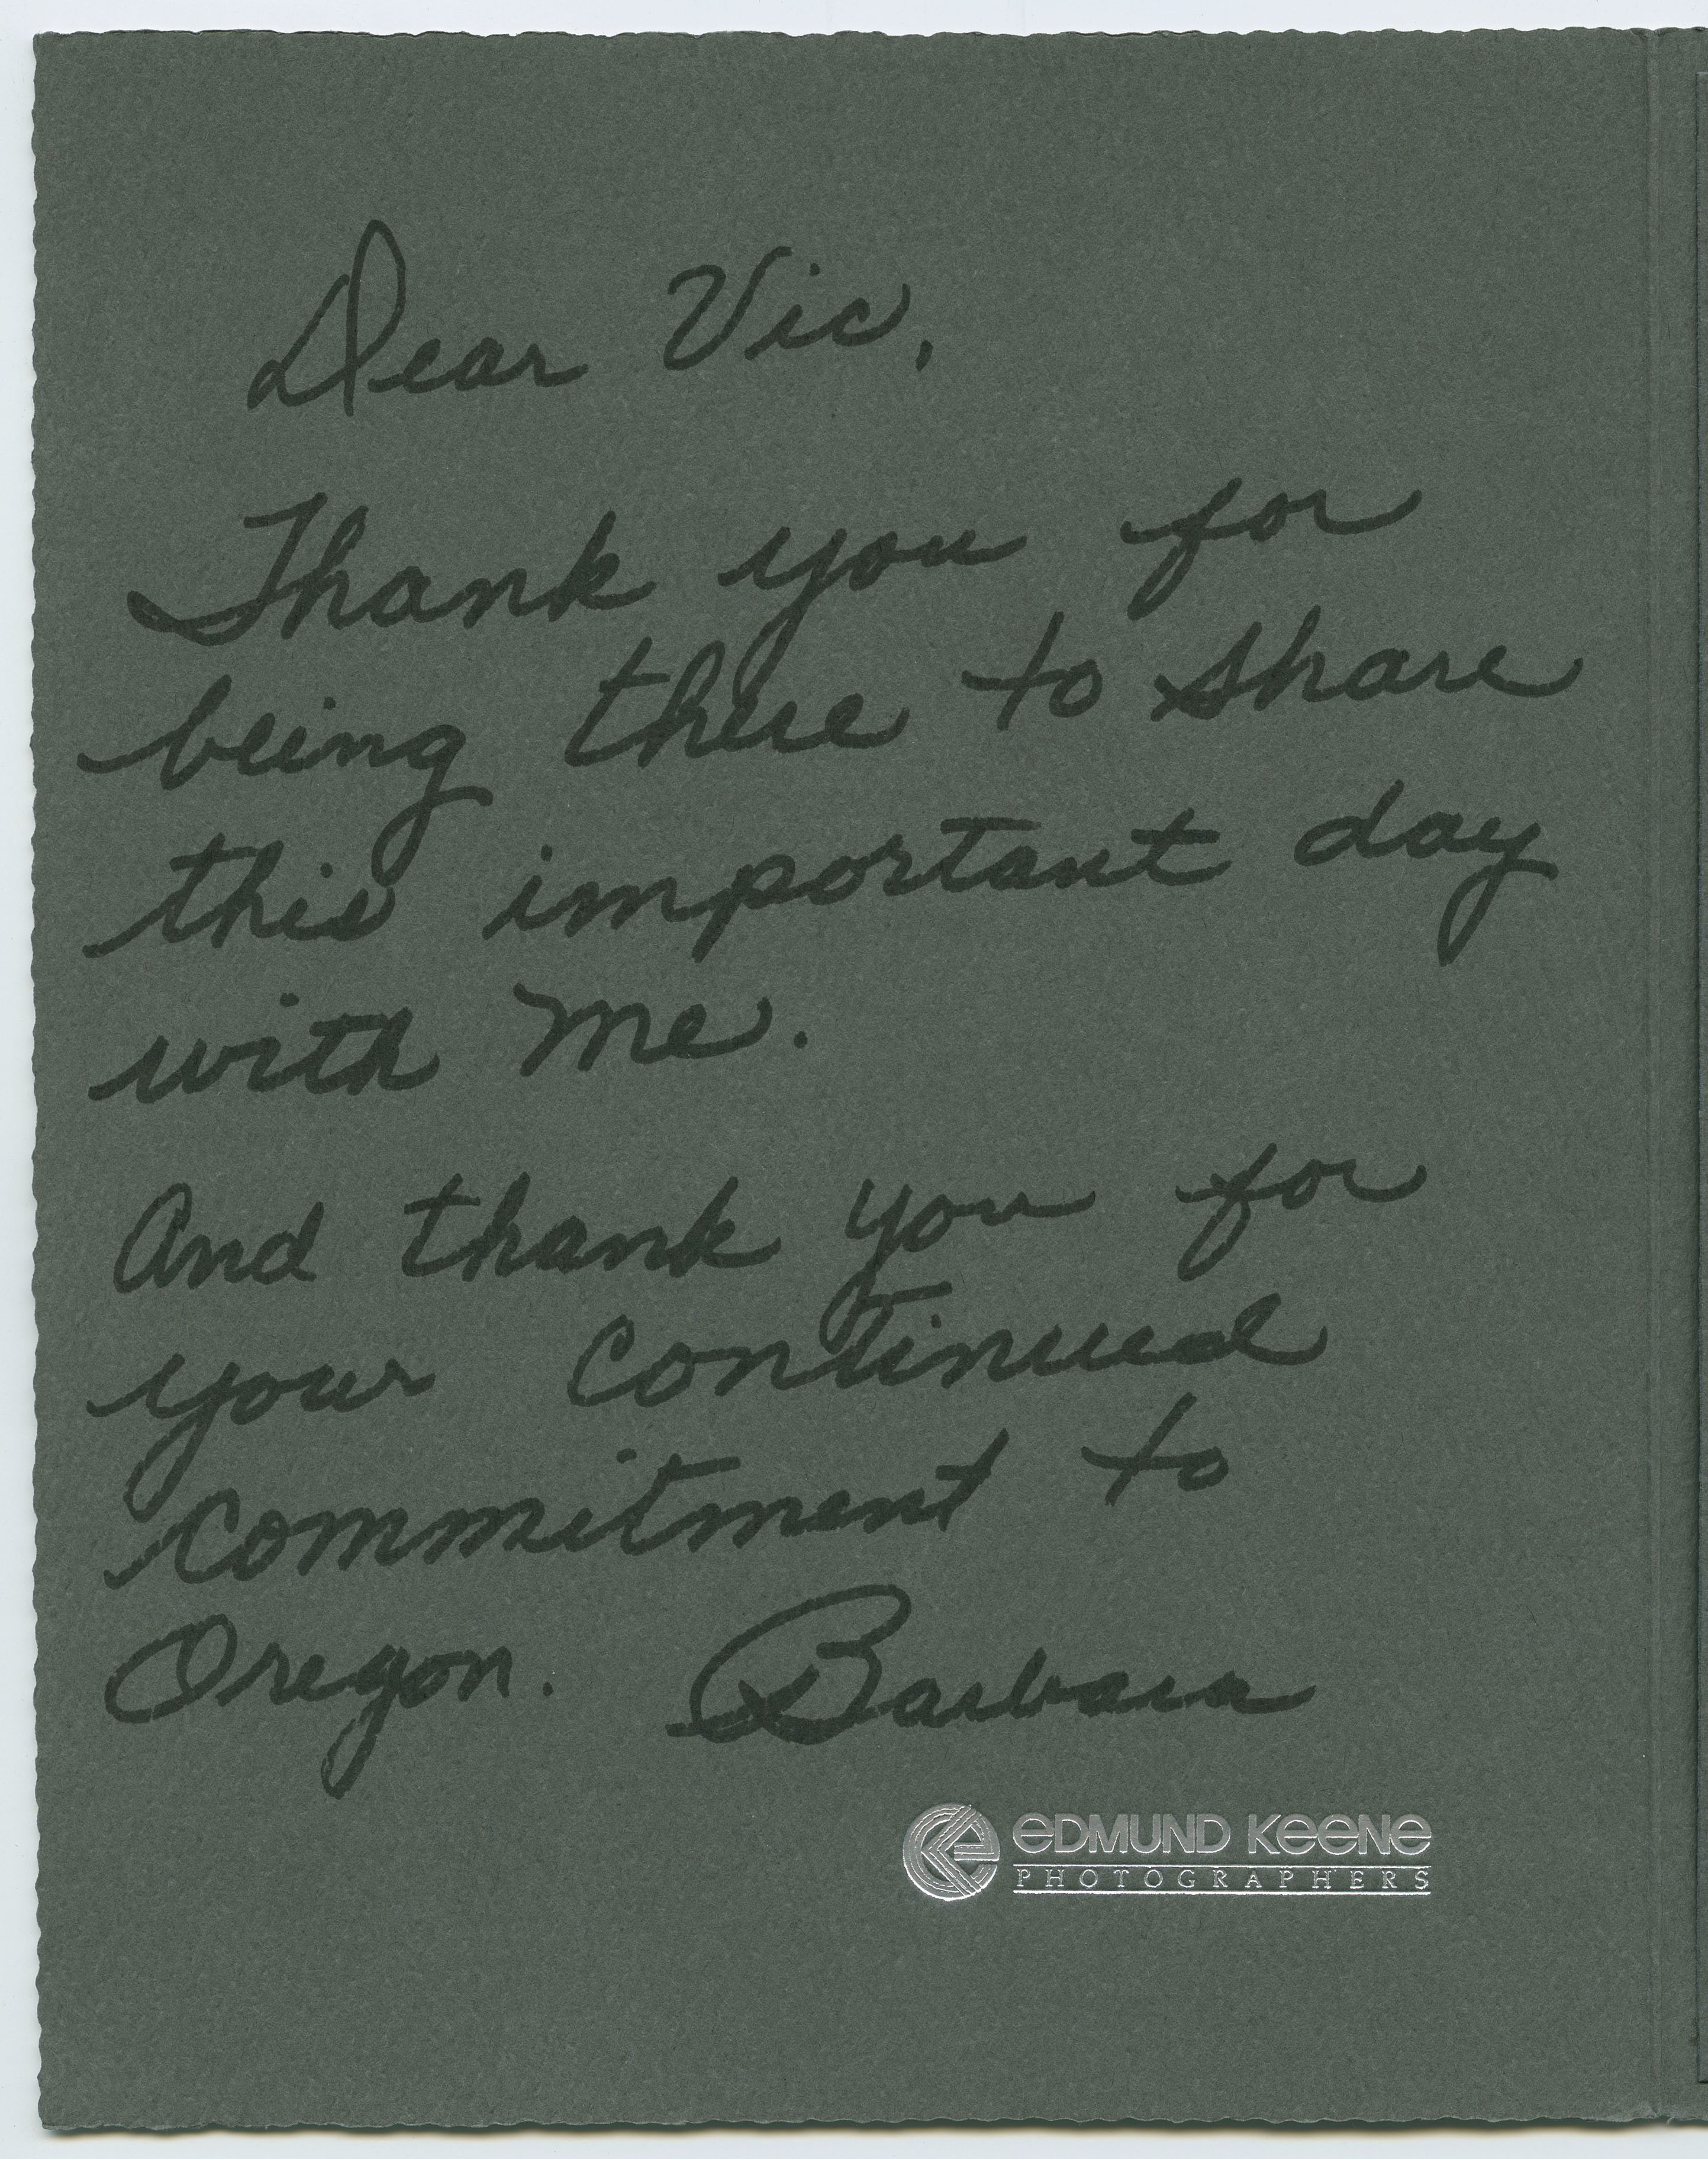 Dear Vic,
Thank you for
being there to share
this important day
with me.
And thank you for
your continued
commitment to
Oregon. Barbara
EDMUND KEENE
PHOTOGRAPHERS